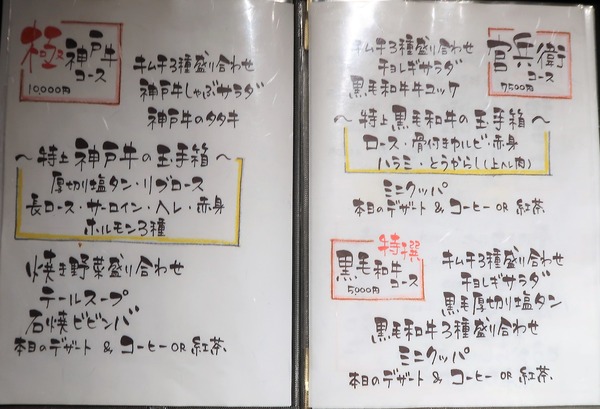 極 神戸牛
コース
10,000円
キムチ3種盛り合わせ
神戸牛しゃぶサラダ
神戸牛のタタキ
～特上 神戸牛の玉手箱～
厚切り塩タン・リブロース
長ロース・サーロイン・ヘレ・赤身
ホルモン3種
焼き野菜盛り合わせ
テールスープ
石焼ビビンバ
本日のデザート & コーヒー OR 紅茶
官兵衛
コース
7500円
キムチ3種盛り合わせ
チョレギサラダ
黒毛和牛牛ユッケ
～特上 黒毛和牛の玉手箱～
ロース・骨付きカルビ・赤身
ハラミ・とうがらし(上ヘレ肉)
ミニクッパ
本日のデザート & コーヒー OR 紅茶
特撰
黒毛和牛
コース
5000円
キムチ3種盛り合わせ
チョレギサラダ
黒毛厚切り塩タン
黒毛和牛3種盛り合わせ
ミニクッパ
本日のデザート & コーヒー OR 紅茶